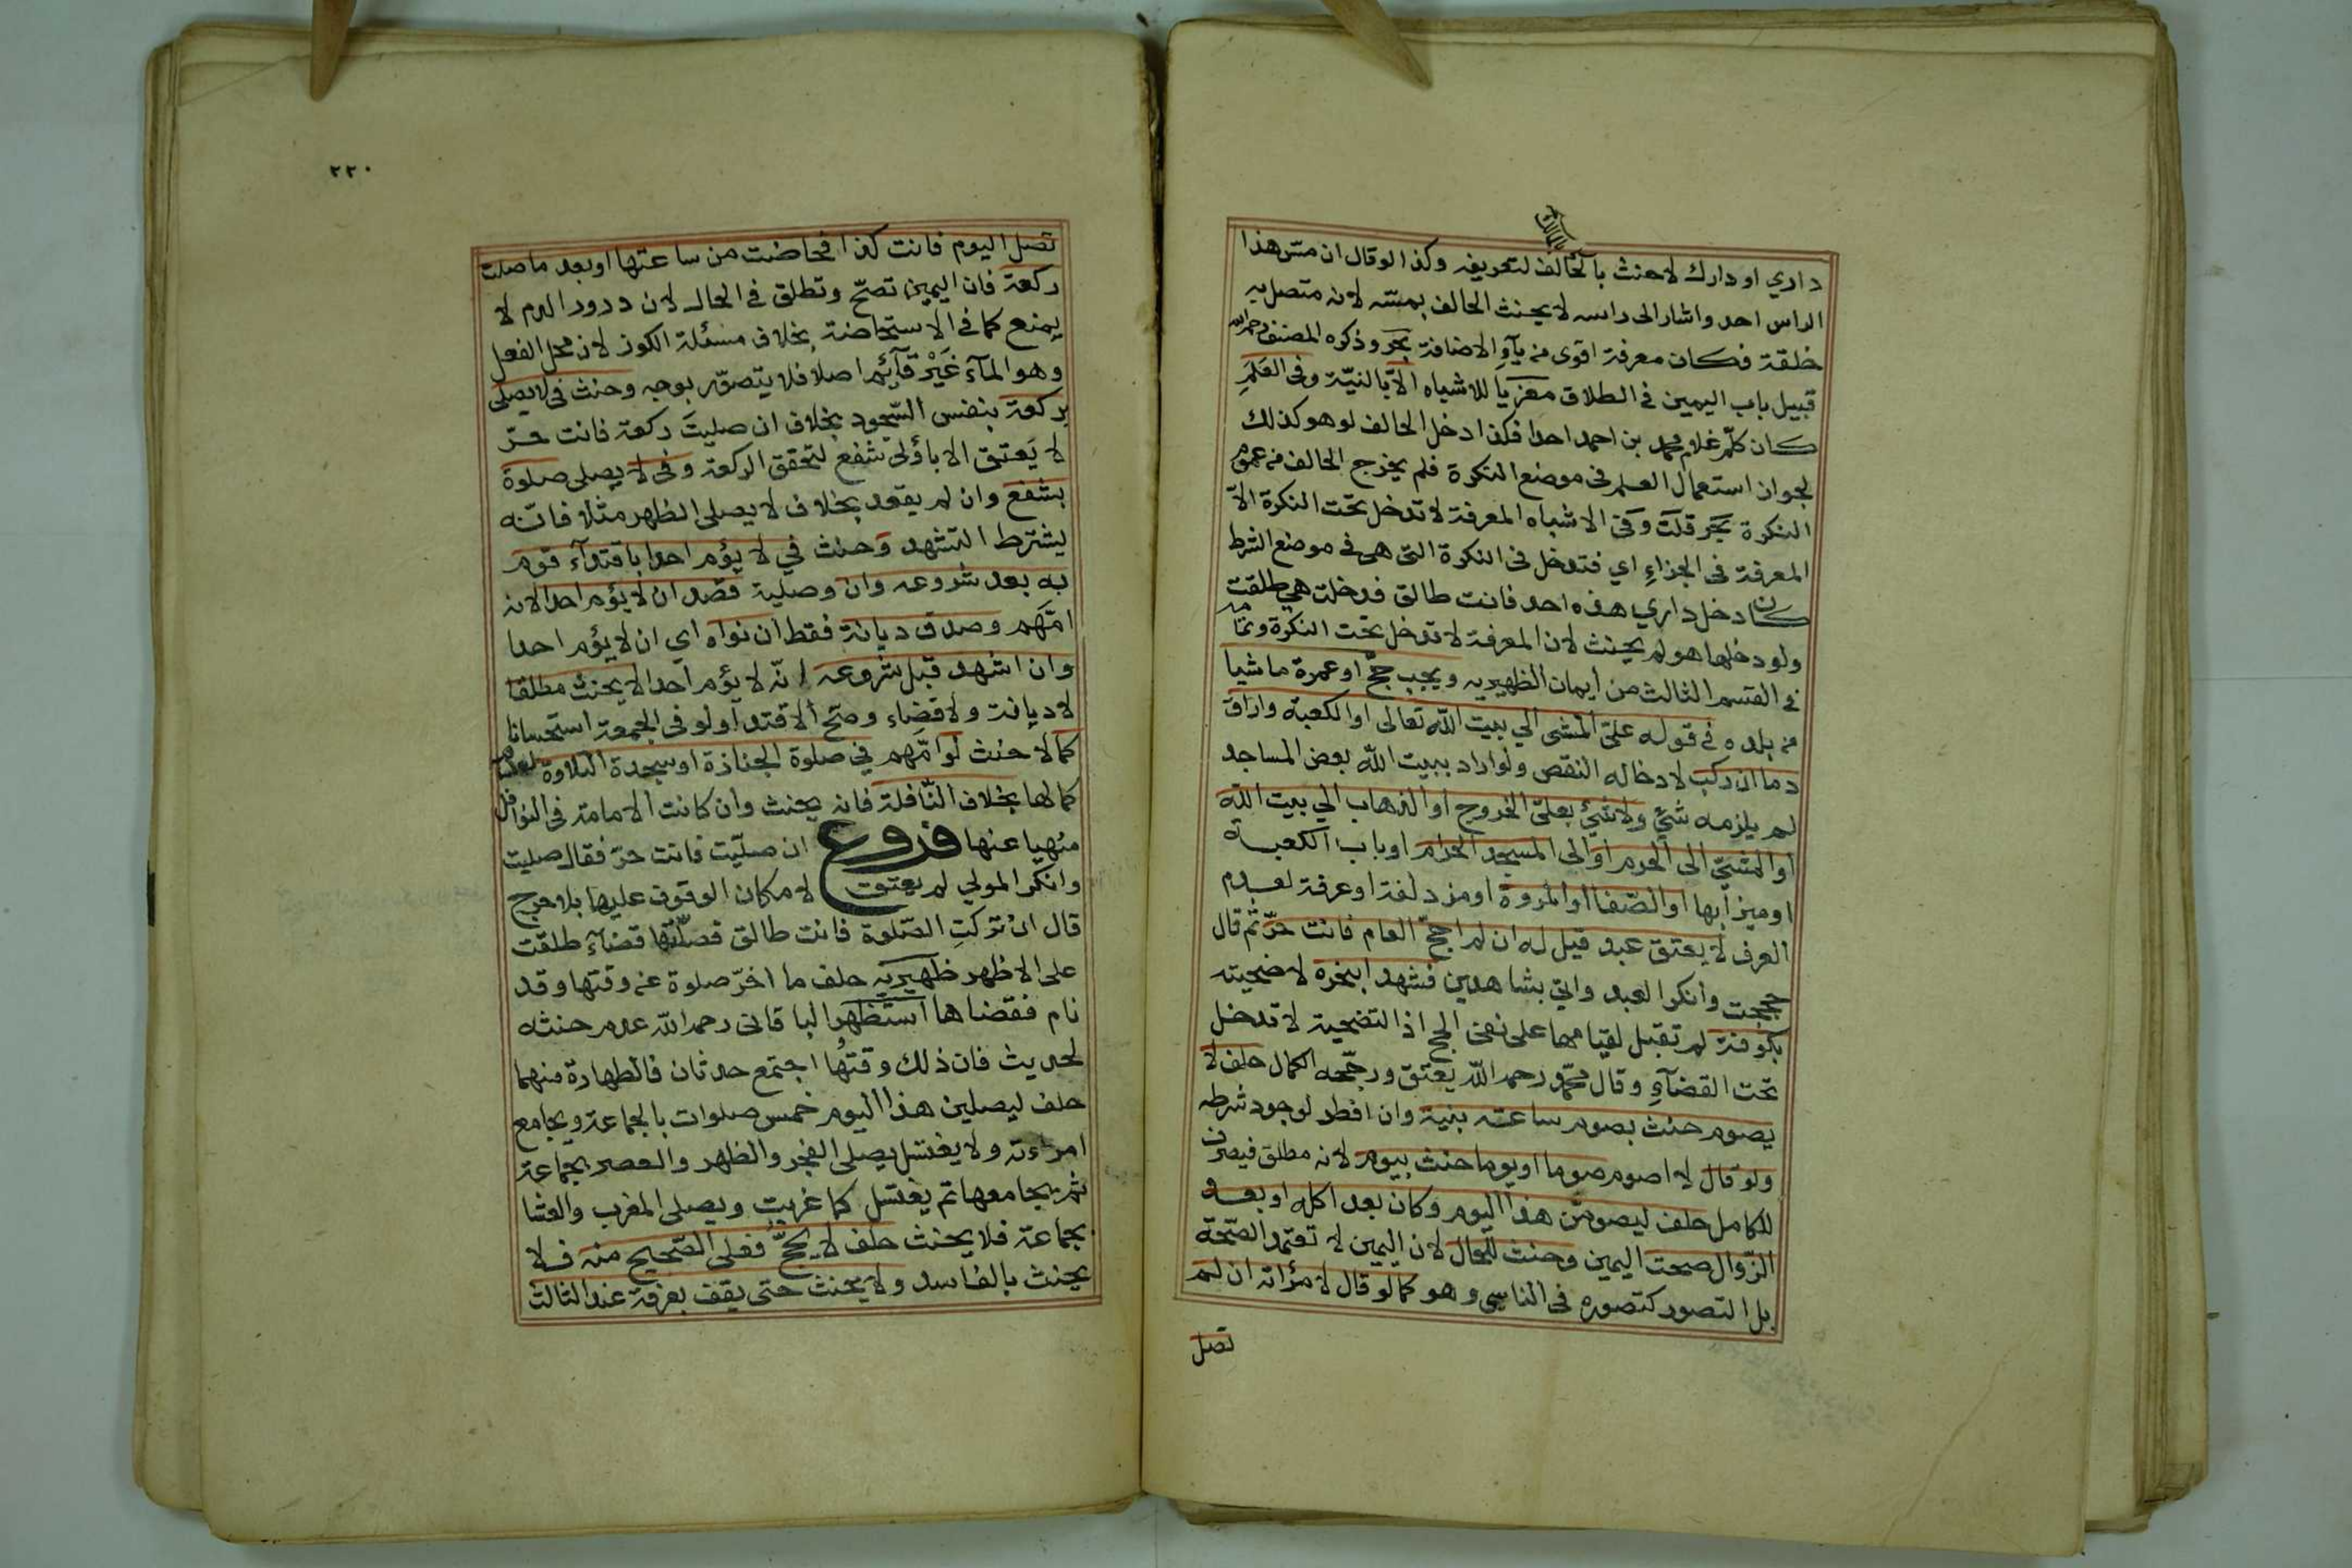 داري او دارك لا حنث بالحالف لتعريفه وكذا لو قال ان مسّ هذا
الراس احد واشار الى راسه لا يحنث الحالف بمسّه لانه متصل به
خلقة فكان معرفة اقوى من ياء الاضافة بحر وذكره المصنف رحمه الله
قبيل باب اليمين في الطلاق معزيا للاشباه الا بالنيّة وفي العَلَمِ
كان كلّم غلام محمد بن احمد احدا فكذا دخل الحالف لو هو كذلك
لجواز استعمال العلم في موضع النكرة فلم يخرج الحالف من عموم
النكرة بحر قلت وفي الاشباه المعرفة لا تدخل تحت النكرة الا
المعرفة في الجزاءِ اي فتدخل في النكرة التي هي في موضع الشرط
كان دخل داري هذه احد فانت طالق فدخلت هي طلقت
ولو دخلها هو لم يحنث لان المعرفة لا تدخل تحت النكرة وتمامه
في القسم الثالث من ايمان الظهيريه ويجب حجّ او عمرة ماشيا
من بلده في قوله عليّ المشي الي بيت الله تعالى او الكعبة واراق
دما ان ركب لادخاله النقص ولو اراد ببيت الله بعض المساجد
لم يلزمه شيٌ ولا شيٌ بعليّ الخروج او الذهاب الي بيت الله
او المشيّ الى الحرم او الى المسجد الحرام او باب الكعبة
او ميزابها او الصّفا او المروة او مزدلفة او عرفة لعدم
العرف لا يعتق عبد قيل له ان لم احجّ العام فانت حرّ ثم قال
حججت وانكر العبد واتي بشاهدين فشهدا بنحره لاضحيته
بكوفة لم تقبل لقيامها على نفي الحج اذ التضحية لا تدخل
تحت القضآءِ وقال محمّد رحمه الله يعتق ورجّحه الكمال حلف لا
يصوم حنث بصوم ساعته بنية وان افطر لوجود شرطه
ولو قال لا اصوم صوما او يوما حنث بيوم لانه مطلق فيصرف
للكامل حلف ليصومنّ هذا اليوم وكان بعد اكله او بعد
الزّوال صحت اليمين وحنث للحال لان اليمين لا تعتمد الصّحة
بل التصور كتصوره في الناسي وهو كما لو قال لامرٔاته ان لم
تصل
٢٢٠
تصل اليوم فانت كذا فحاضت من ساعتها او بعد ما صلت
ركعة فان اليمين تصحّ وتطلق في الحال لان درور الدم لا
يمنع كما في الاستحاضة بخلاف مسئلة الكوز لان محل الفعل
وهو المآء غَيْر قآئم اصلا فلا يتصوّر بوجه وحنث في لا يصلى
بركعة بنفس السّجود بخلاف ان صليتَ ركعة فانت حرّ
لا يَعتق الا باؤلى شفع لتحقق الركعة وفي لا يصلى صلوة
بشفع وان لم يقعد بخلاف لا يصلى الظهر مثلا فانّه
يشترط التشهد وحنث في لا يؤم احدا باقتدآء قوم
به بعد شروعه وان وصلية قصد ان لا يؤم احدا لانه
امّهم وصدق ديانة فقط ان نواه اي ان لا يؤم احدا
وان اشهد قبل شروعه انّه لا يؤم احدا لا يحنث مطلقا
لا ديانة ولا قضاء وصحّ الاقتدا ولو في الجمعة استحسانا
كما لا حنث لو امّهم في صلوة الجنازة او سجدة التلاوة لعدم
كمالها بخلاف النّافلة فانه يحنث وان كانت الامامة في النوافل
منهيا عنها فروع ان صلّيت فانت حرّ فقال صليت
وانكر المولي لم يعتق لامكان الوقوف عليها بلا حرج
قال ان تركتِ الصّلوة فانت طالق فصلّتها قضآء طلقت
على الاظهر ظهيريه حلف ما اخرّ صلوة عن وقتها وقد
نام فقضاها استظهر الباقاني رحمه الله عدم حنثه
لحديث فان ذلك وقتُها اجتمع حدثان فالطهارة منهما
حلف ليصلين هذا اليوم خمس صلوات بالجماعة ويجامع
امرءته ولا يغتسل يصلى الفجر والظهر والعصر بجماعة
ثم يجامعها ثم يغتسل كما غربت ويصلى المغرب والعشا
بجماعة فلا يحنث حلف لا يحجّ فعلى الصّحيح منه فلا
يحنث بالفاسد ولا يحنث حتى يقف بعرفة عند الثالث